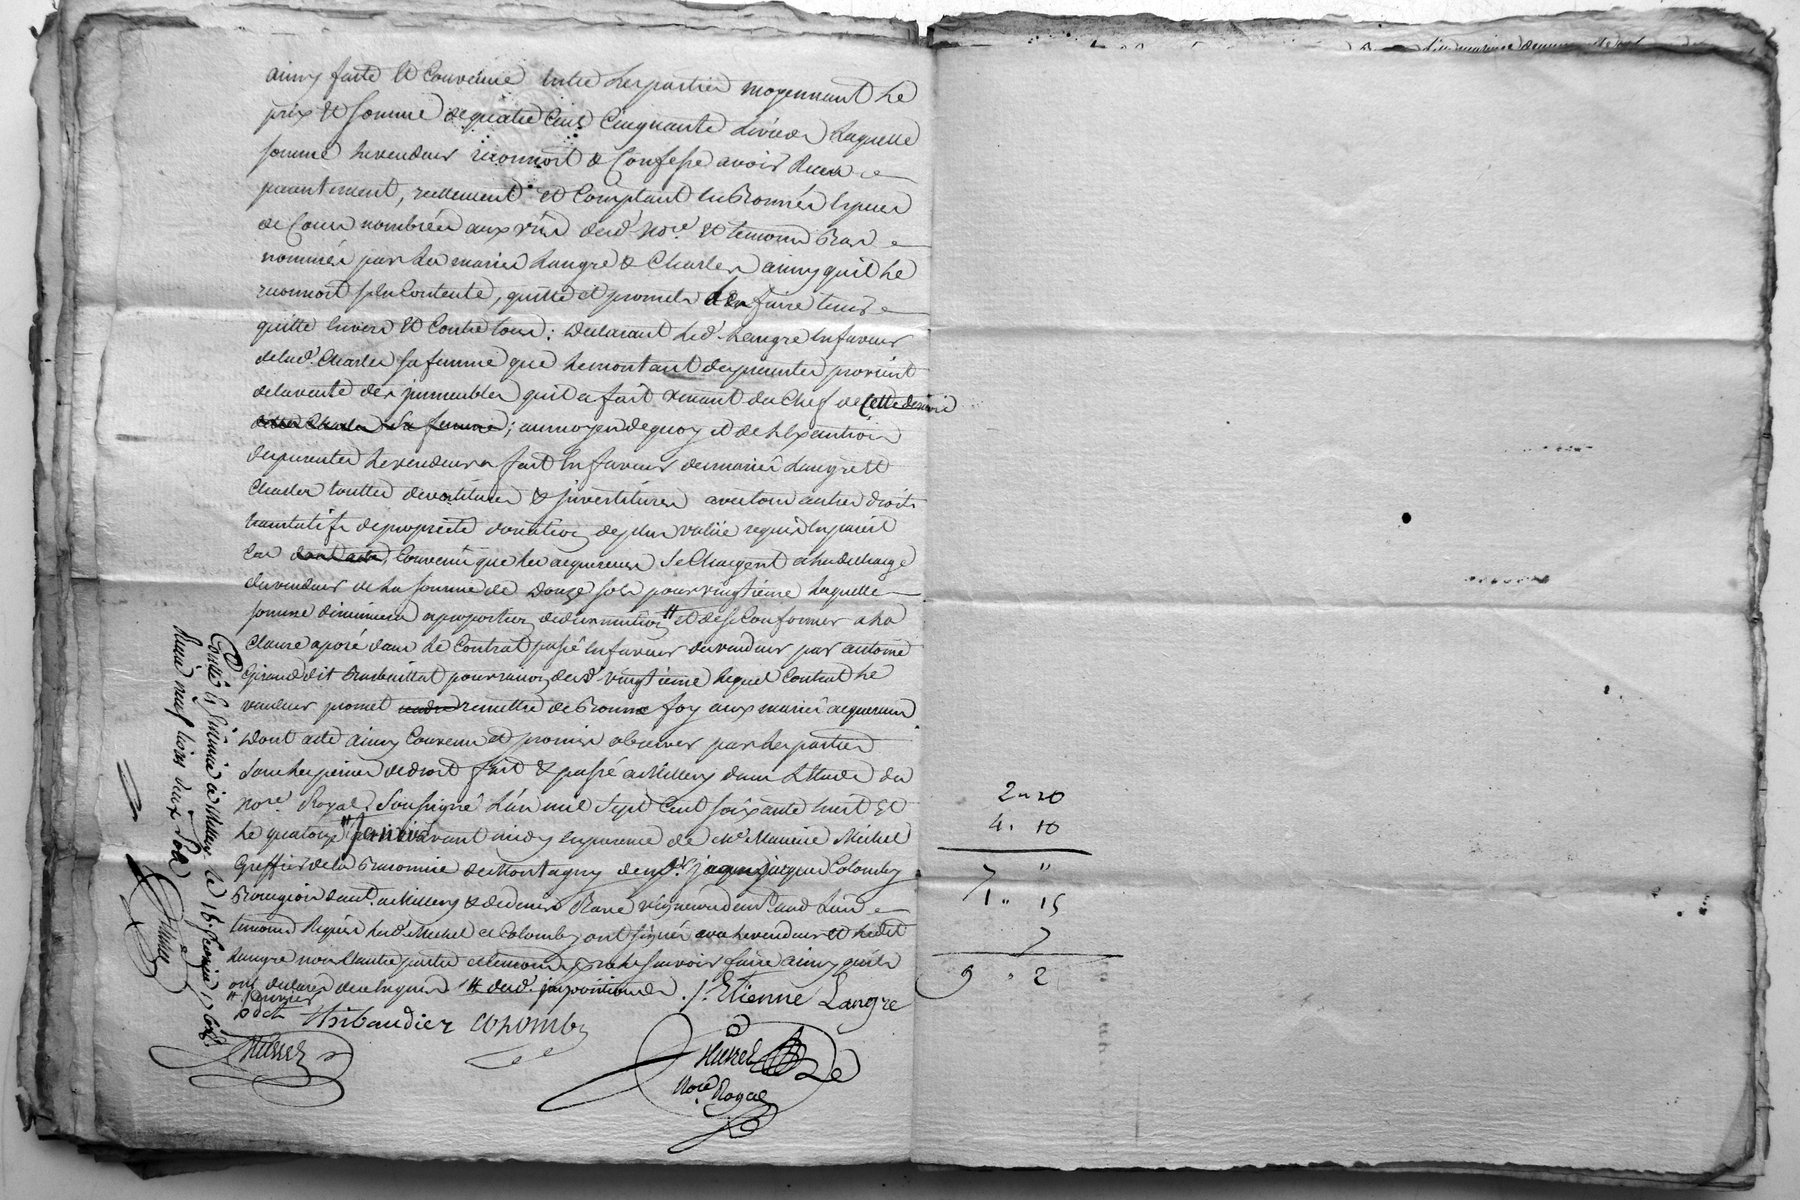 ainsy faite et convenüe entre les parties moyennant le
prix et somme de quatre cens cinquante livres laquelle
somme le vendeur reconnoit et confesse avoir recu
presentement, reellement et comptant en bonnes especes
de cours nombrées aux vües dud. no.re et temoins bas
nommés par les mariés Langre et Charles ainsy quil le
reconnoit sen contente, quitte et promet les en faire tenir
quitte envers et contre tous; declarant led. Langre en faveur
de lad. Charles sa femme que le montant des presentes provient
de la vente des immeubles quil a fait venant du chef de cette derniere
; au moyen de quoy et de lexecution
des presentes le vendeur a fait en faveur des mariés Langre et
Charles touttes devestitures et investitures avec tous autres droits
translatifs de propriété donation de plus valüe requis en pareil
cas convenu que les acquereurs se chargent a la decharge
du vendeur de la somme de douze sols pour vingtieme laquelle
somme diminuera a proportion de diminution # et de se conformer a la
clause aposé dans le contrat passé en faveur du vendeur par antoine
Giraud dit pour raison dud. vingtieme lequel contrat le
vendeur promet remettre de bonne foy aux mariés acquereurs
Dont acte ainsy convenu et promis observer par les parties
sous les peines de droit fait et passé a Millery dans l'etude du
no.re Royal soussigné L'an mil sept cent soixante huit et
le quatorze janvier avant midy en presence de M.e Maurice Michel
Greffier de la Baronnie de Montagny dem.t jacque Colomby
Bourgeois dem.t a Millery et de Vigneron dem.t aud. lieu
temoins Requis led. Michel et Colomby ont signés avec le vendeur et ledit
Langre non l'autre partie et temoin pour ne le savoir faire ainsy quils
ont declarés de ce enquis # desd. impositions J. Etienne Langre
# Janvier
Thibaudier Colomby
Michel
no.re Royal
Controllé et insinué à Millery le 16. Janvier 1768
Recu neuf livres deux sols
2 " 10
4 . 10
7 "
1 " 15
7
9 " 2